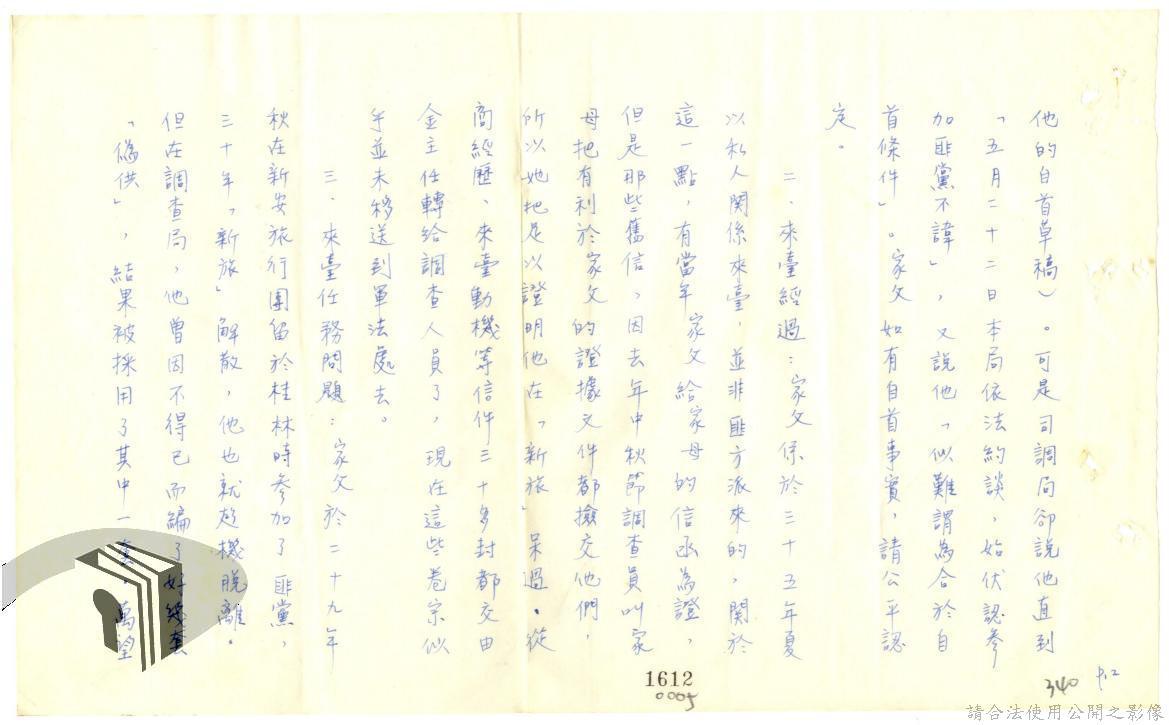 他的自首草稿）。可是司調局卻說他直到
「五月二十二日本局依法約談，始伏認參
加匪黨不諱」，又說他「似難謂為合於自
首條件」。家父如有自首事實，請公平認
定。
二、來臺經過：家父係於三十五年夏
以私人關係來臺，並非匪方派來的，關於
這一點，有當年家父給家母的信函為證，
但是那些舊信，因去年中秋節調查員叫家
母把有利於家父的證據文件都撿交他們，
所以她把足以證明他在「新旅」呆過、從
商經歷、來臺動機等信件三十多封都交由
金主任轉給調查人員了，現在這些卷宗似
乎並未移送到軍法處去。
三、來臺任務問題：家父於二十九年
秋在新安旅行團留於桂林時參加了匪黨，
三十年，「新旅」解散，他也就趁機脫離。
但在調查局，他曾因不得已而編了好幾套
「偽供」，結果被採用了其中一套，萬望
1612
0005
340
p.2
請合法使用公開之影像